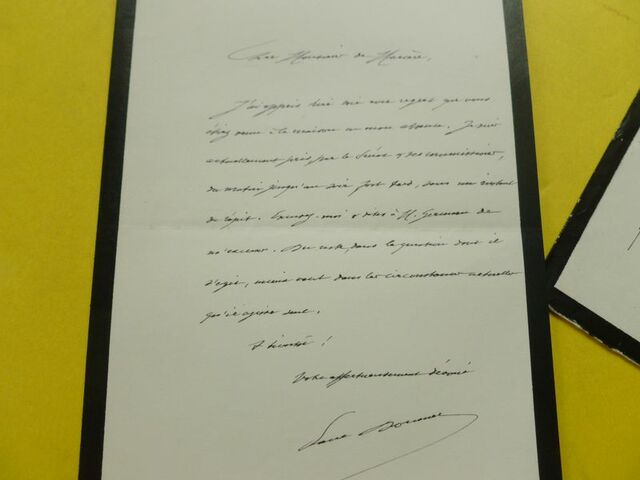 Cher Monsieur de Marcère,
J'ai appris hier avec regret que vous
étiez venu à la maison en mon absence. Je suis
actuellement pris, par le Sénat & des commissions,
du matin jusqu'au soir fort tard, sans un instant
de répit. Excusez-moi & dites à M. Germain de
m'excuser. Du reste, dans la question dont il
s'agit, mieux vaut dans les circonstances actuelles
qu'il agisse seul.
A bientôt !
Votre affectueusement dévoué
Paul Doumer